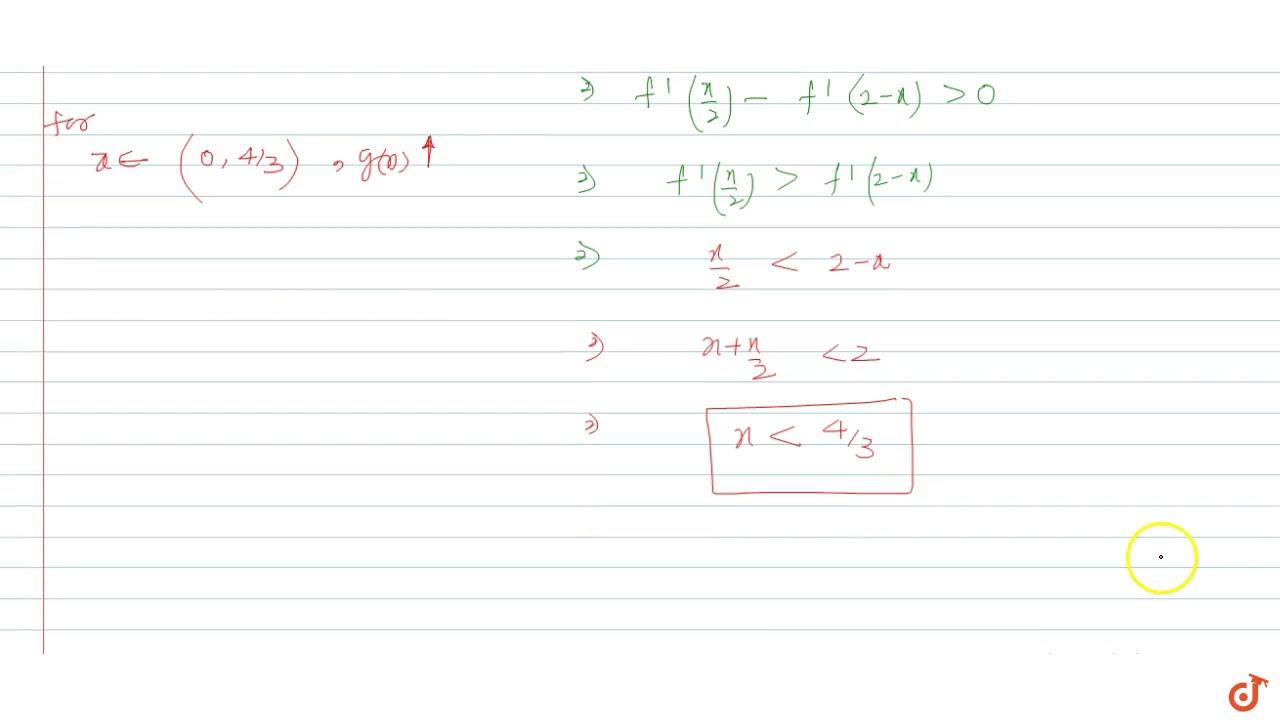 for
x ∈ (0, 4/3) , g(x) ↑
⇒ f'(x/2) − f'(2−x) > 0
⇒ f'(x/2) > f'(2−x)
⇒ x/2 < 2−x
⇒ x + x/2 < 2
⇒ x < 4/3